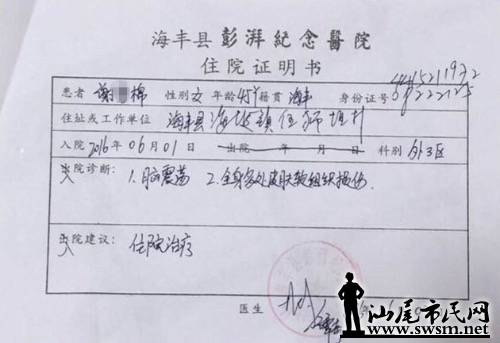 海丰县彭湃纪念醫院
住院证明书
患者 谢 棉 性别 女 年龄 45岁 籍贯 海丰 身份证号
住址或工作单位 海丰县海城镇伍狮埔村
入院 2016年06月01日 出院 年 月 日 科别 外3区
出院诊断: 1.脑震荡 2.全身多处皮肤软组织损伤.
出院建议: 住院治疗
医生
汕尾市民网
www.swsm.net